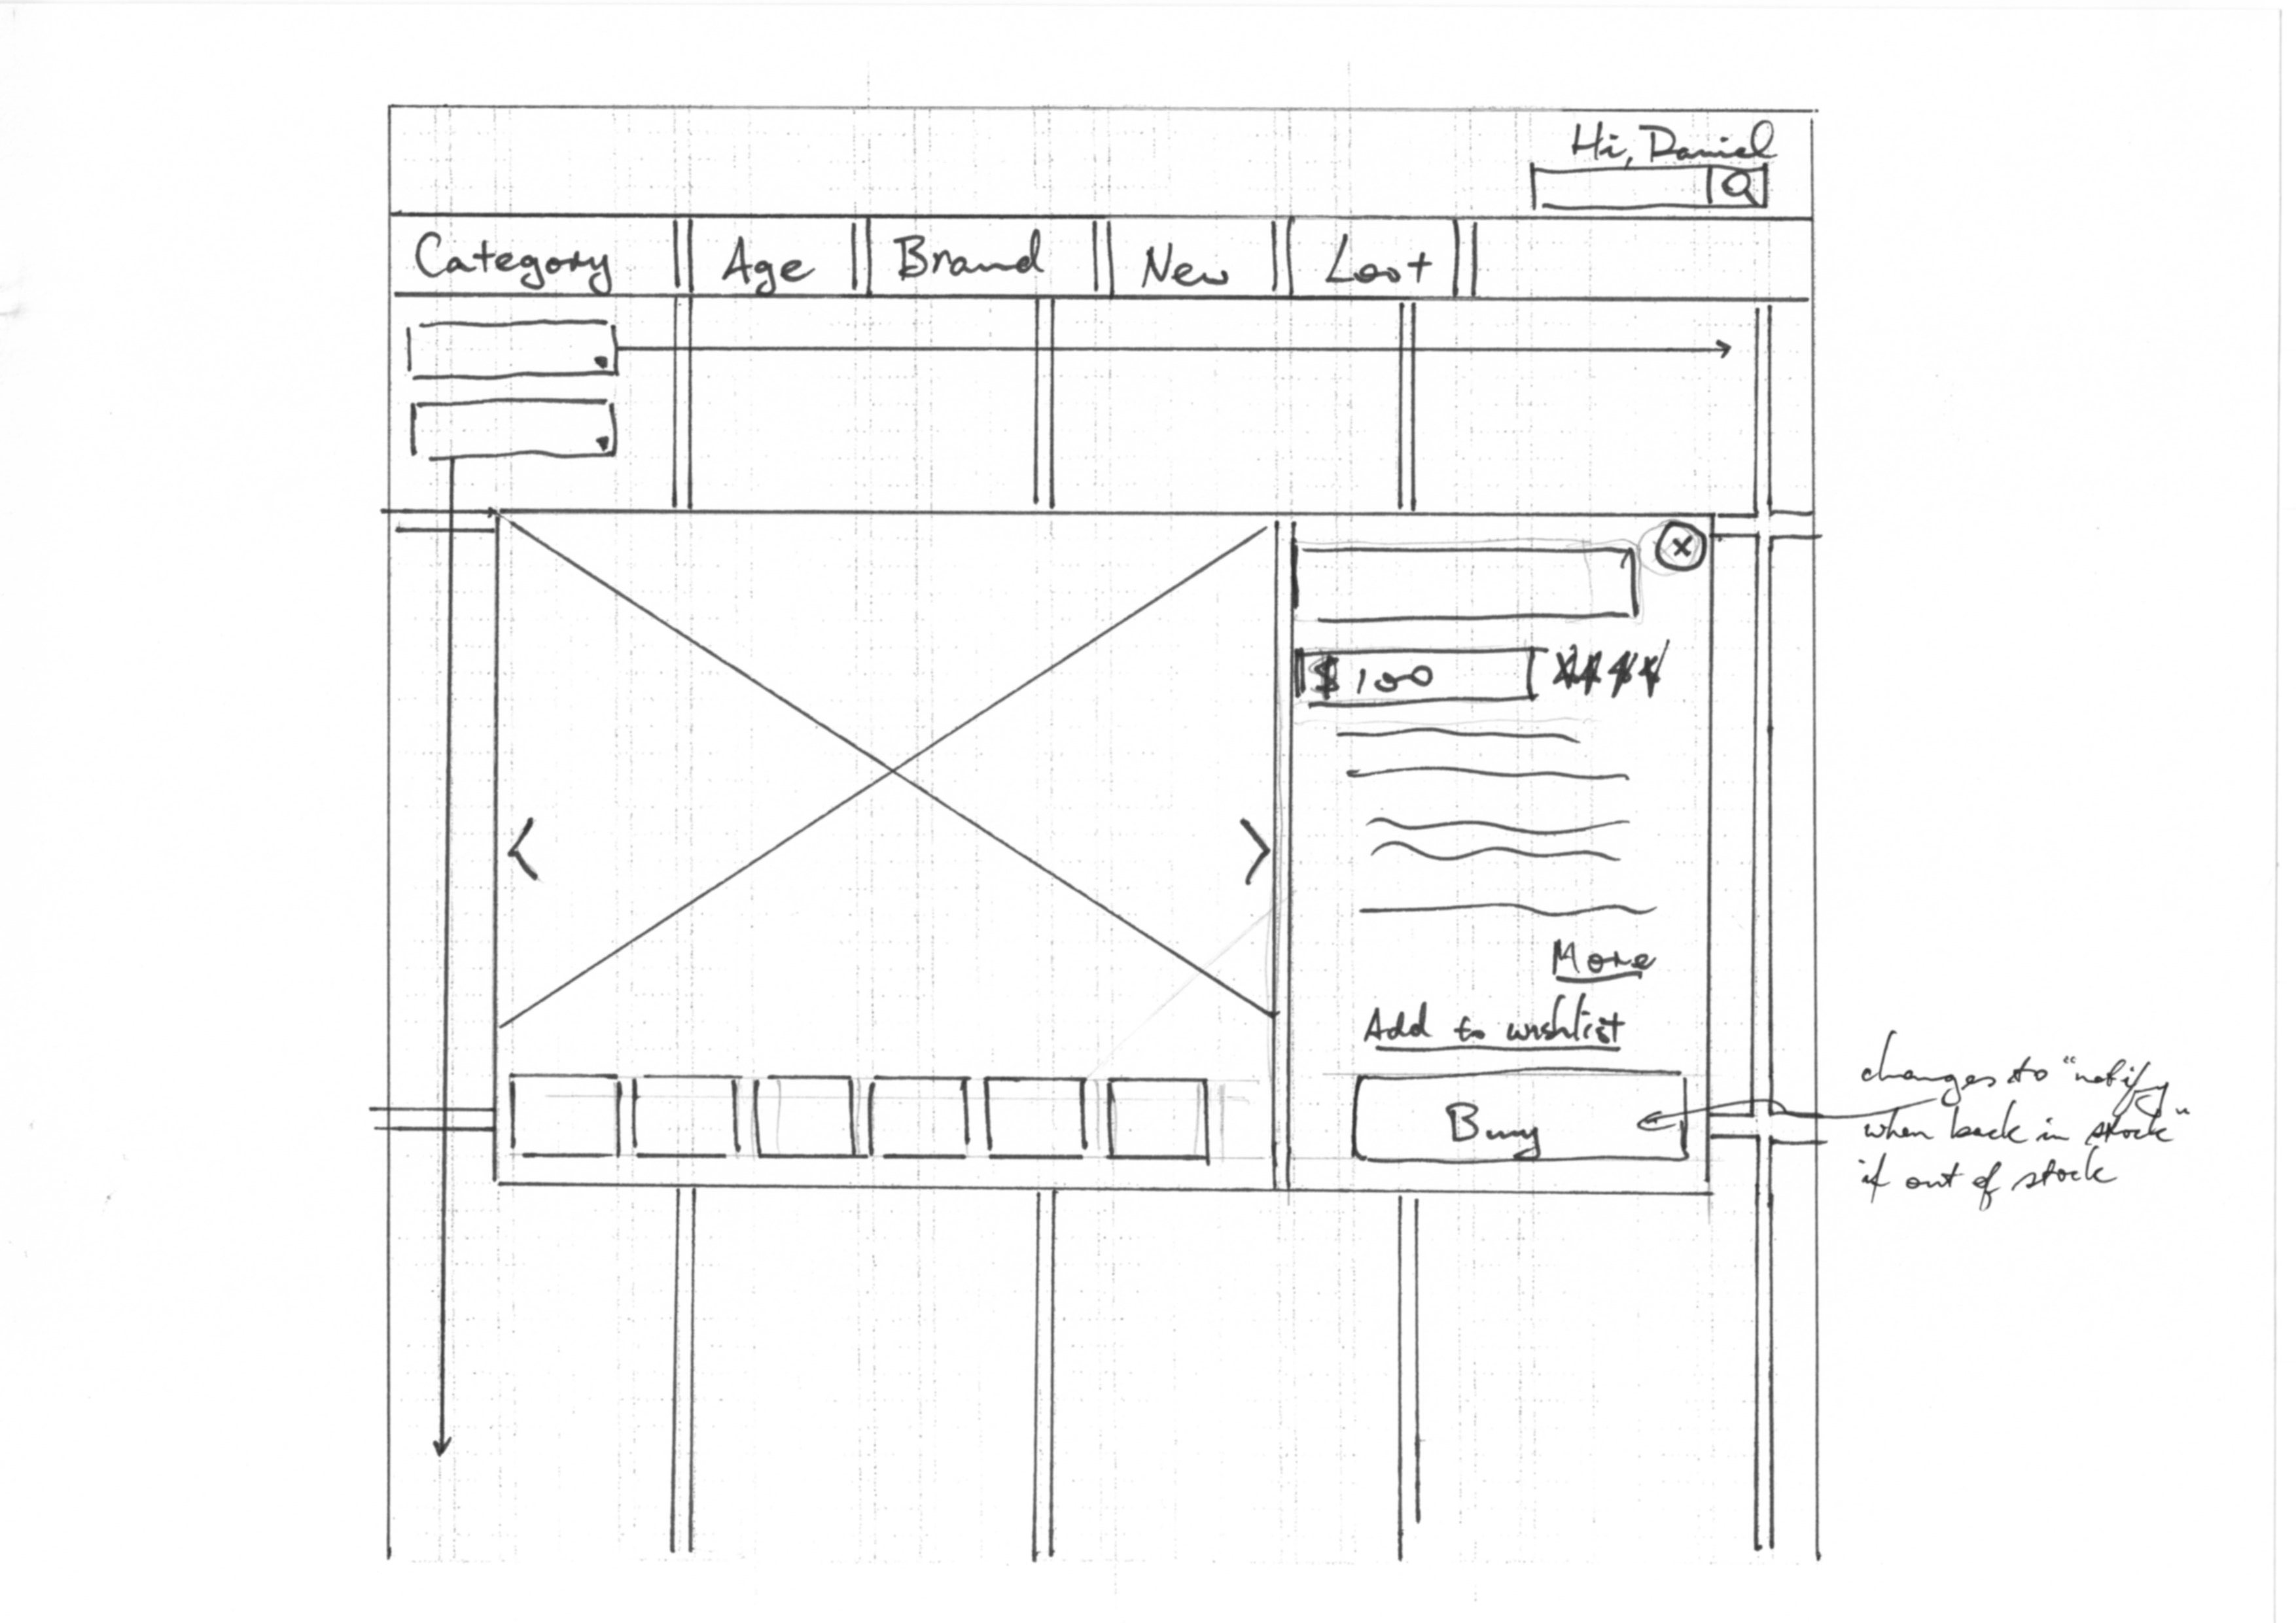 Hi, Daniel
Category Age Brand New Loot
$100
More
Add to wishlist
Buy
changes to "notify
when back in stock"
if out of stock